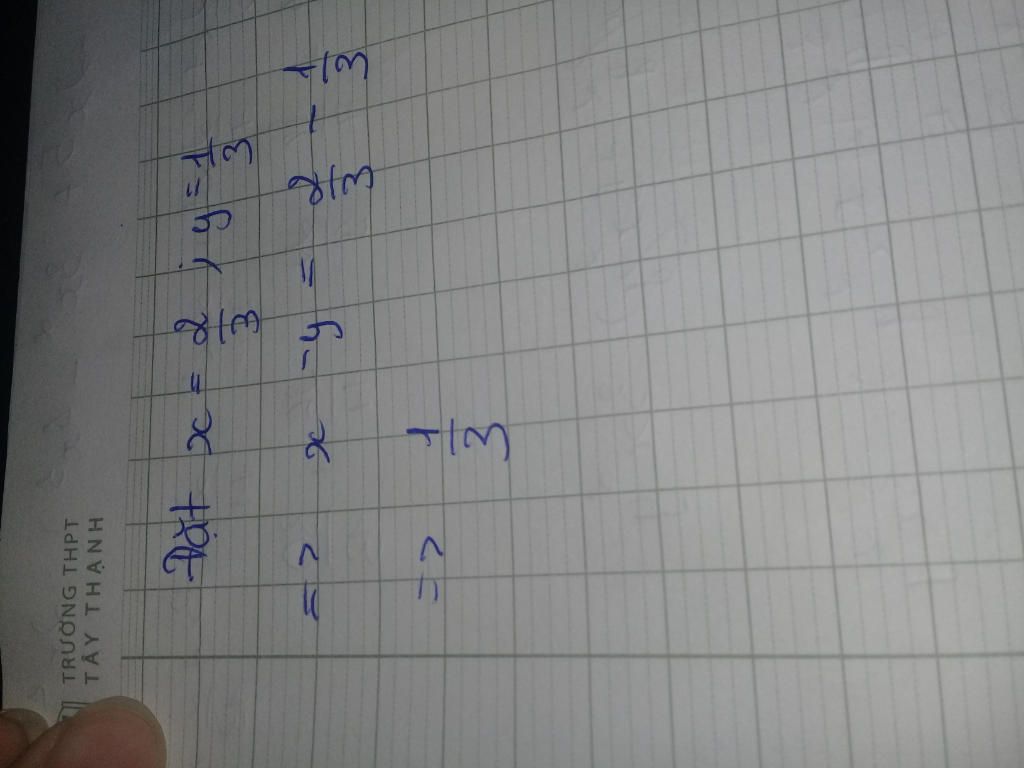 TRƯỜNG THPT
TÂY THẠNH
Đặt x = 2/3 ; y = 1/3
=> x - y = 2/3 - 1/3
=> 1/3